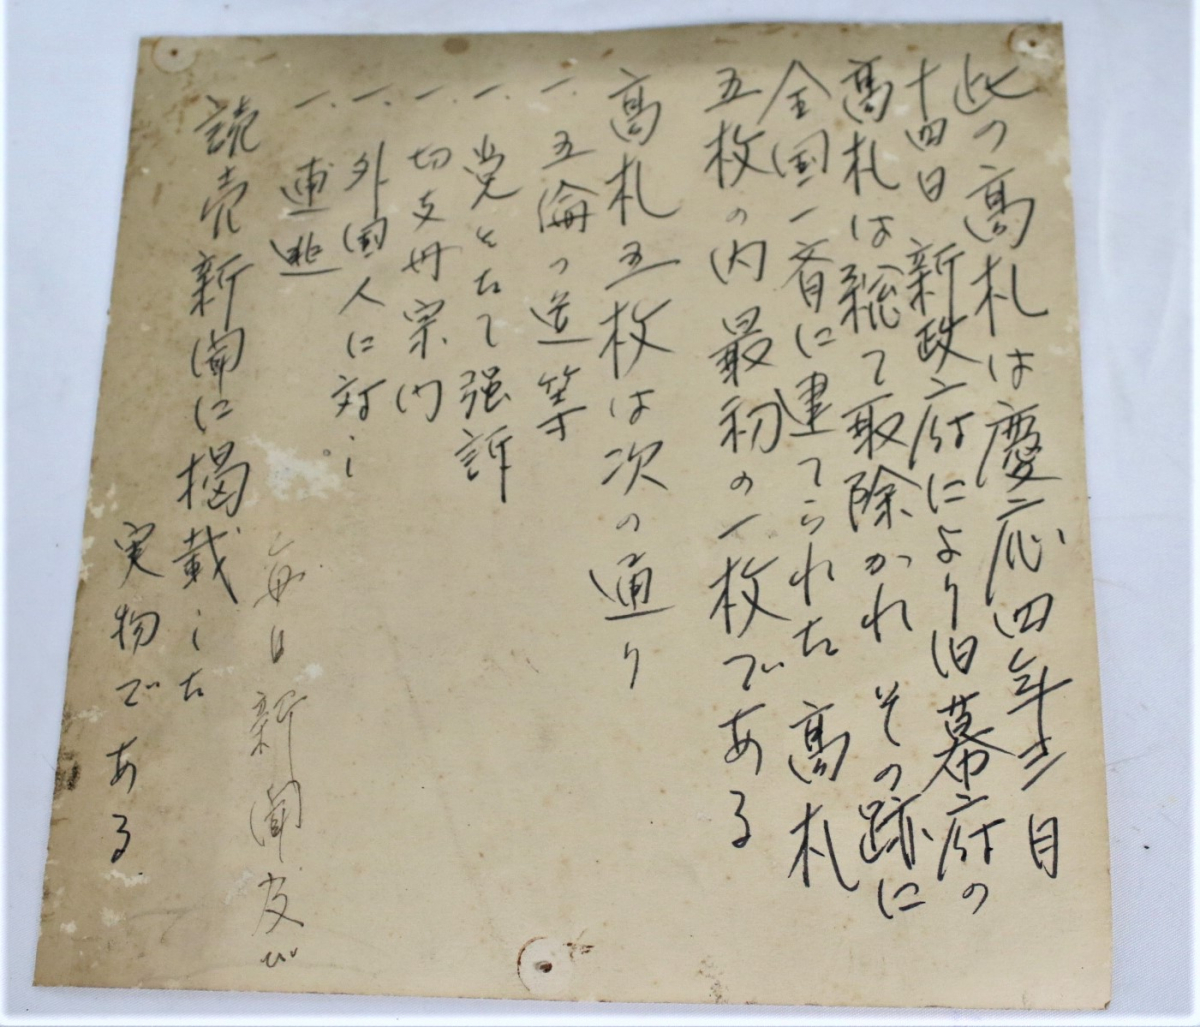 此の高札は慶応四年三月
十四日 新政府により旧幕府の
高札は総て取除かれ その跡に
全国一斉に建てられた 高札
五枚の内最初の一枚である
高札五枚は次の通り
一. 五倫の道等
一. 党をたて強訴
一. 切支丹宗門
一. 外国人に対し
一. 逋逃
毎日新聞及び
読売新聞に掲載した
実物である